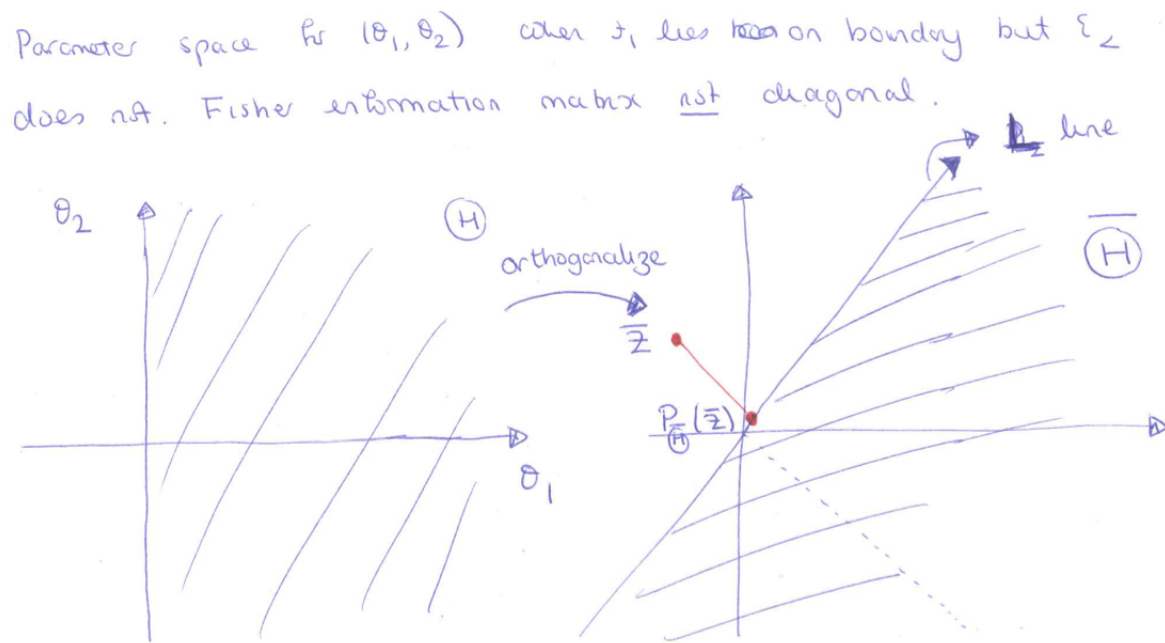 Parameter space for (θ₁, θ₂) when θ₁ lies on boundary but ξ₂
does not. Fisher information matrix not diagonal.
L₂ line
θ₂
Θ
Θ̄
orthogonalize
Z̄
P_Θ̄(Z̄)
θ₁